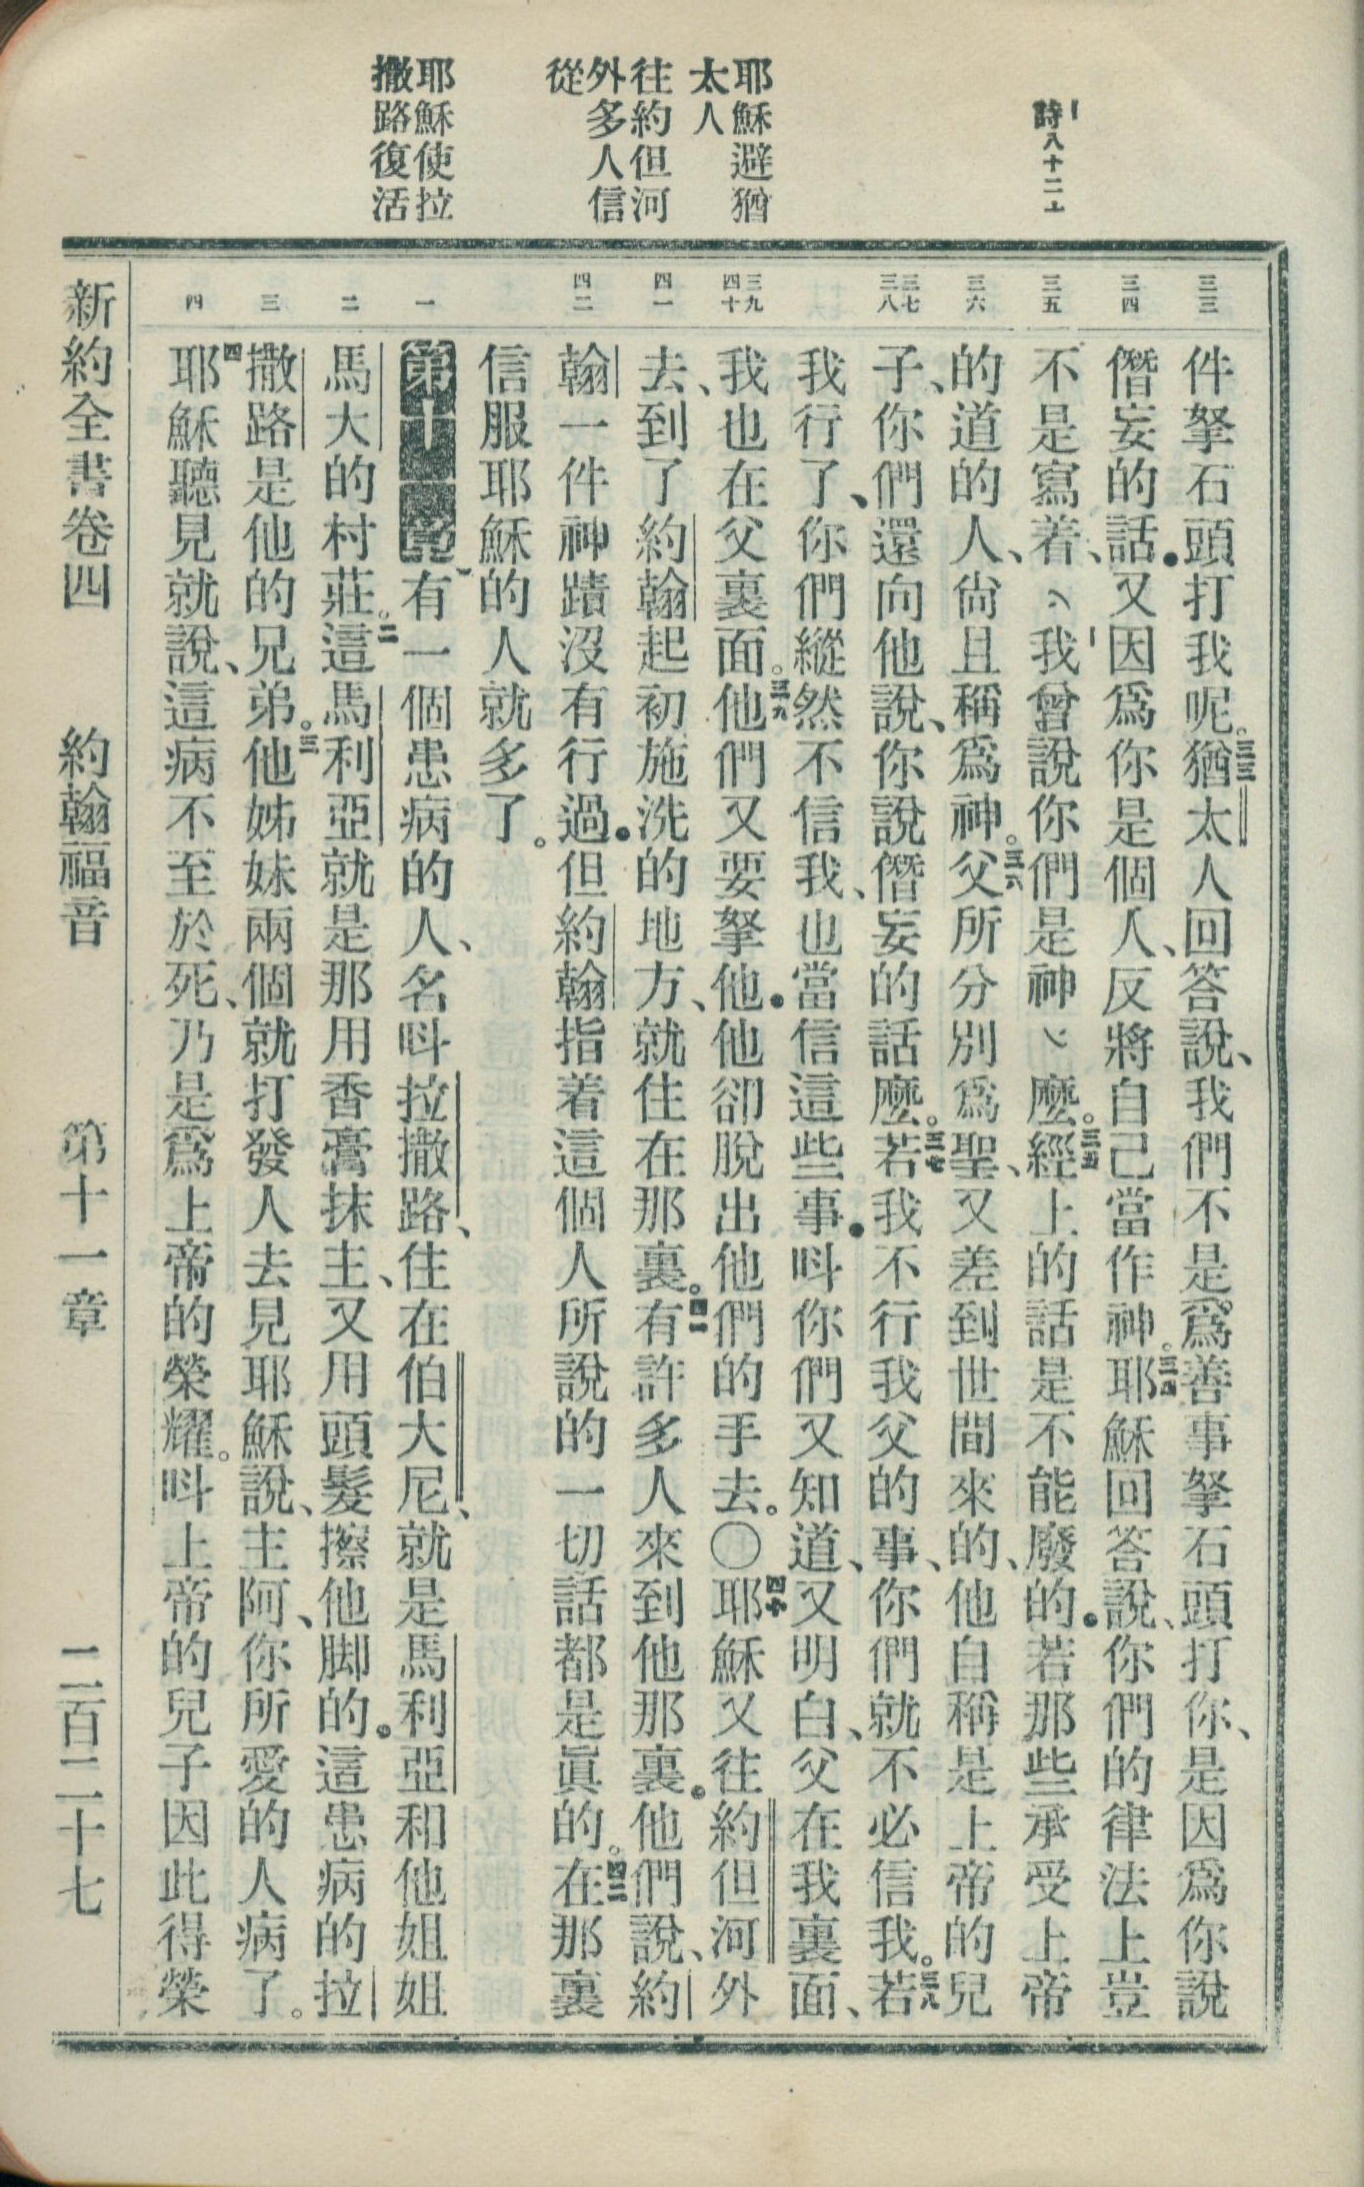 詩八十二
耶穌避猶
太人
往約但河
外多人信
從
耶穌使拉
撒路復活
三三
三四
三五
三六
三七
三八
三九
四十
四一
四二
一
二
三
四
件拏石頭打我呢。三三猶太人回答說、我們不是爲善事拏石頭打你、是因爲你說
僭妄的話•又因爲你是個人、反將自己當作神。三四耶穌回答說、你們的律法上豈
不是寫着、我曾說你們是神麼。三五經上的話是不能廢的•若那些承受上帝
的道的人、尙且稱爲神。三六父所分別爲聖、又差到世間來的、他自稱是上帝的兒
子、你們還向他說、你說僭妄的話麼。三七若我不行我父的事、你們就不必信我。三八若
我行了、你們縱然不信我、也當信這些事•呌你們又知道、又明白、父在我裏面、
我也在父裏面。三九他們又要拏他•他卻脫出他們的手去。〇四十耶穌又往約但河外
去、到了約翰起初施洗的地方、就住在那裏。四一有許多人來到他那裏•他們說、約
翰一件神蹟沒有行過•但約翰指着這個人所說的一切話都是眞的。四二在那裏
信服耶穌的人就多了。
第十一章有一個患病的人、名呌拉撒路、住在伯大尼、就是馬利亞和他姐姐
馬大的村莊。二這馬利亞就是那用香膏抹主、又用頭髮擦他脚的•這患病的拉
撒路是他的兄弟。三他姊妹兩個就打發人去見耶穌說、主阿、你所愛的人病了。
四耶穌聽見就說、這病不至於死、乃是爲上帝的榮耀。呌上帝的兒子因此得榮
新約全書卷四　約翰福音　第十一章　二百二十七